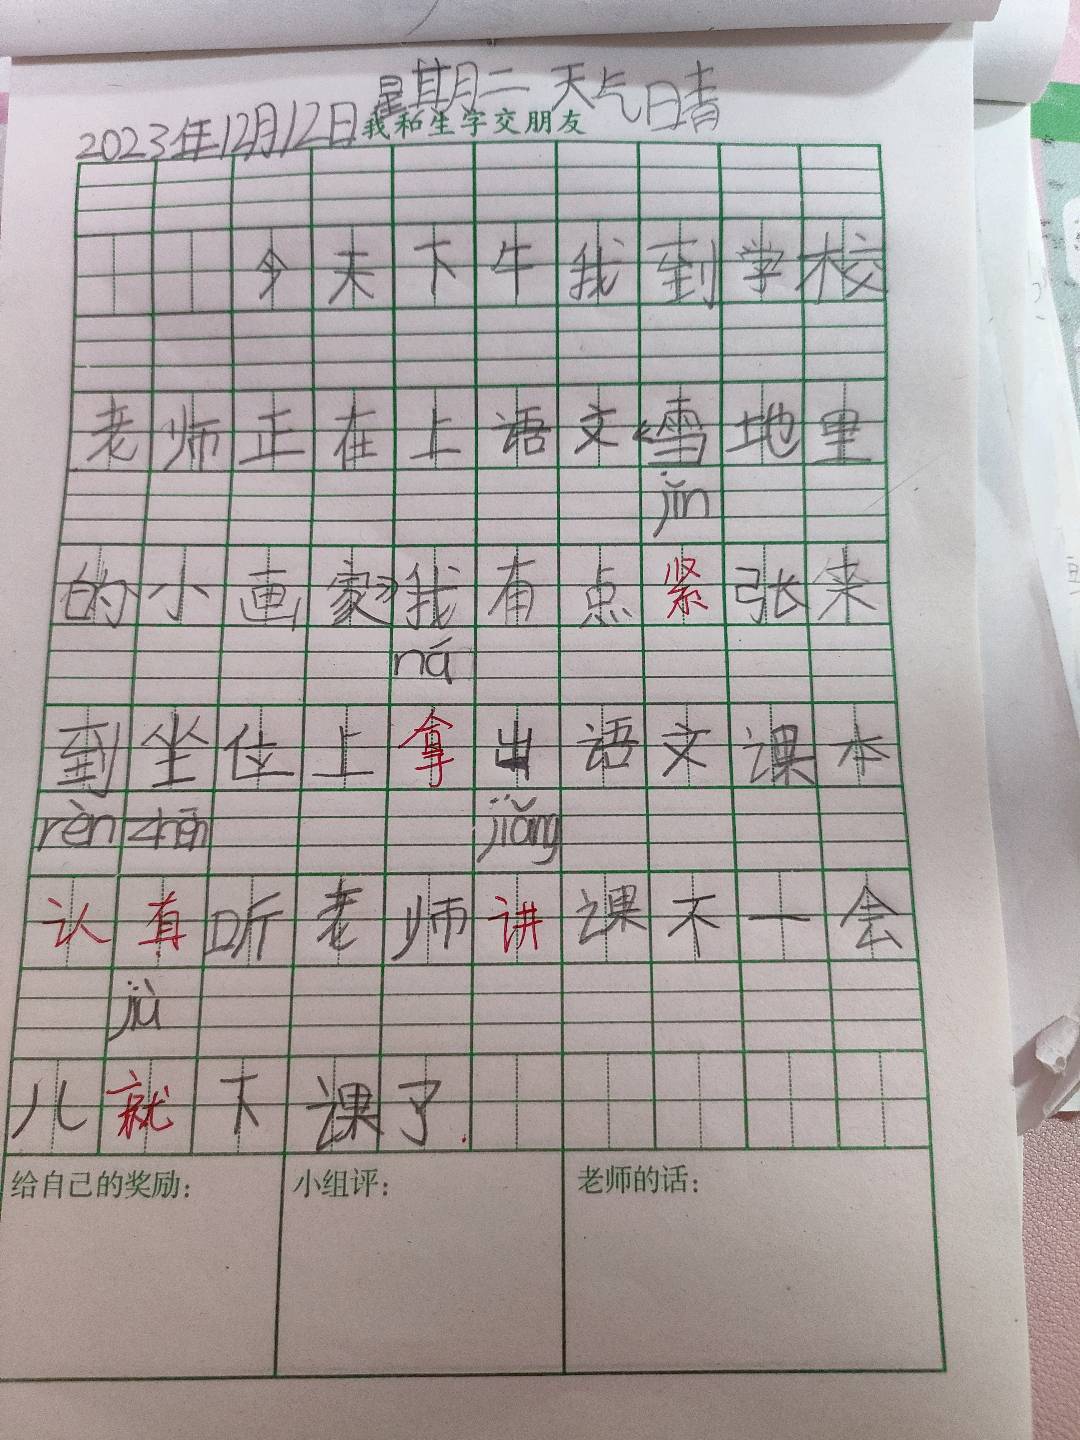 2023年12月12日 星期二 天气晴
我和生字交朋友
今天下午我到学校
老师正在上语文《雪地里
jǐn
的小画家》我有点紧张来
ná
到坐位上拿出语文课本
rèn zhēn jiǎng
认真听老师讲课不一会
jiù
儿就下课了.
给自己的奖励: 小组评: 老师的话: